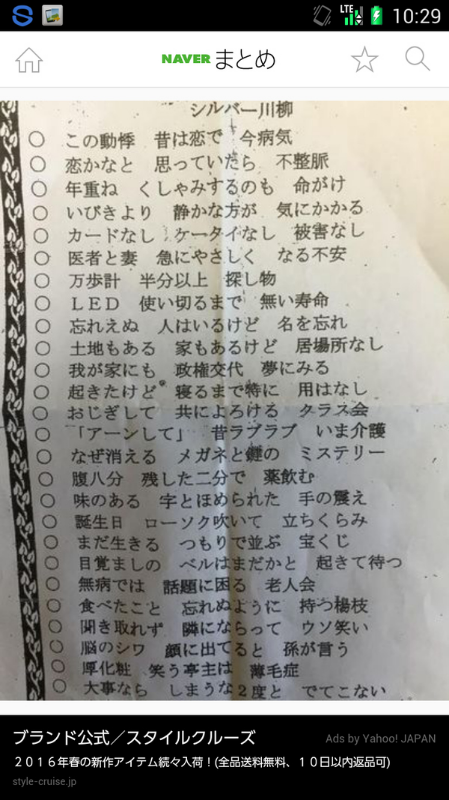 LTE 10:29
NAVER まとめ
シルバー川柳
○ この動悸 昔は恋で 今病気
○ 恋かなと 思っていたら 不整脈
○ 年重ね くしゃみするのも 命がけ
○ いびきより 静かな方が 気にかかる
○ カードなし ケータイなし 被害なし
○ 医者と妻 急にやさしく なる不安
○ 万歩計 半分以上 探し物
○ LED 使い切るまで 無い寿命
○ 忘れえぬ 人はいるけど 名を忘れ
○ 土地もある 家もあるけど 居場所なし
○ 我が家にも 政権交代 夢にみる
○ 起きたけど 寝るまで特に 用はなし
○ おじぎして 共によろける クラス会
○ 「アーンして」 昔ラブラブ いま介護
○ なぜ消える メガネと鍵の ミステリー
○ 腹八分 残した二分で 薬飲む
○ 味のある 字とほめられた 手の震え
○ 誕生日 ローソク吹いて 立ちくらみ
○ まだ生きる つもりで並ぶ 宝くじ
○ 目覚ましの ベルはまだかと 起きて待つ
○ 無病では 話題に困る 老人会
○ 食べたこと 忘れぬように 持つ楊枝
○ 聞き取れず 隣にならって ウソ笑い
○ 脳のシワ 顔に出てると 孫が言う
○ 厚化粧 笑う亭主は 薄毛症
○ 大事なら しまうな2度と でてこない
ブランド公式／スタイルクルーズ Ads by Yahoo! JAPAN
２０１６年春の新作アイテム続々入荷！(全品送料無料、１０日以内返品可)
style-cruise.jp